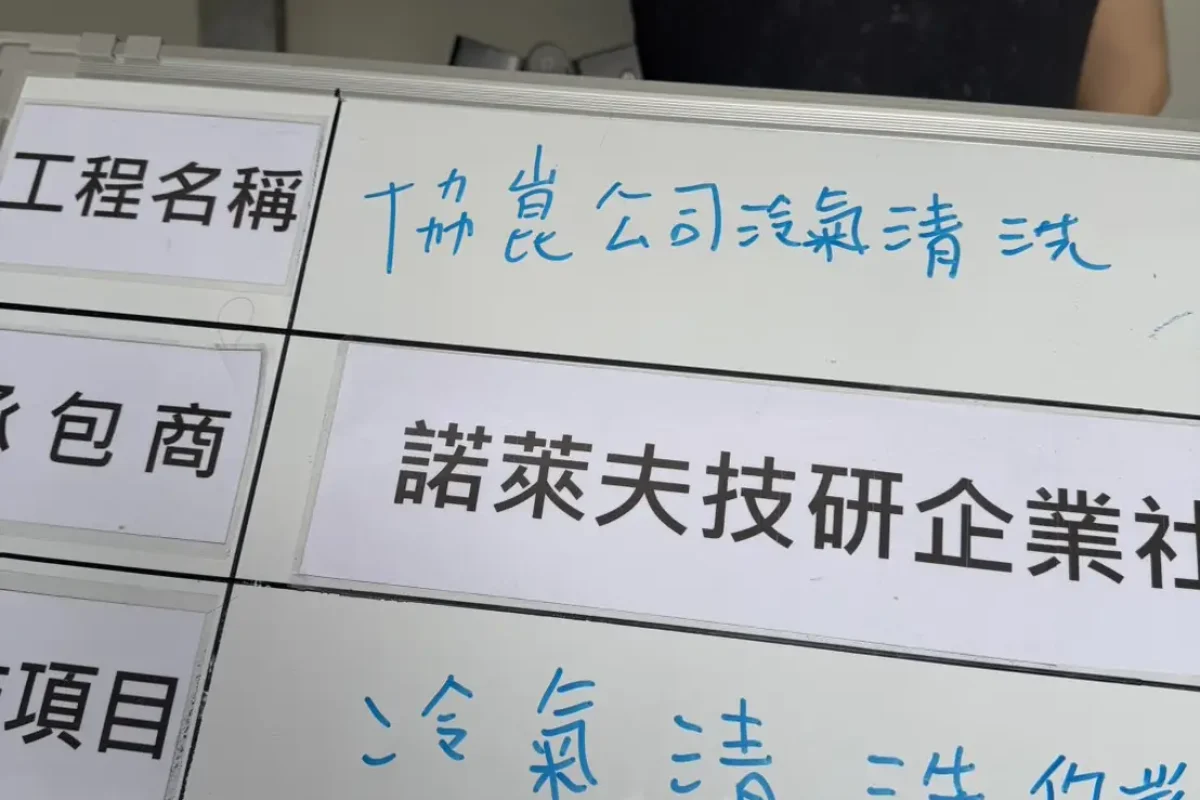 工程名稱 協崑公司冷氣清洗
承包商 諾萊夫技研企業社
項目 冷氣清洗作業